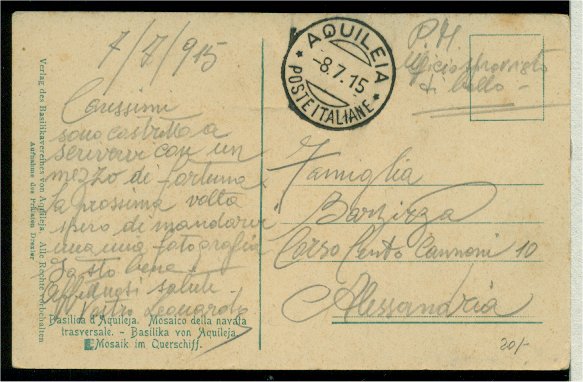 7/7/915
Carissimi
sono costretto a
scrivervi con un
mezzo di fortuna
la prossima volta
spero di mandarvi
una mia fotografia
Io sto bene
Affettuosi saluti
Vostro Leonardo
AQUILEIA
-8.7.15
* POSTE ITALIANE *
P.M.
sprovvisto
di bollo
Famiglia
Barizza
Corso Cento Cannoni 10
Alessandria
20/-
Basilica d'Aquileja. Mosaico della navata
trasversale. - Basilika von Aquileja.
Mosaik im Querschiff.
Verlag des Basilikavereines von Aquileja. Alle Rechte vorbehalten
Aufnahme des Prälaten Drexler